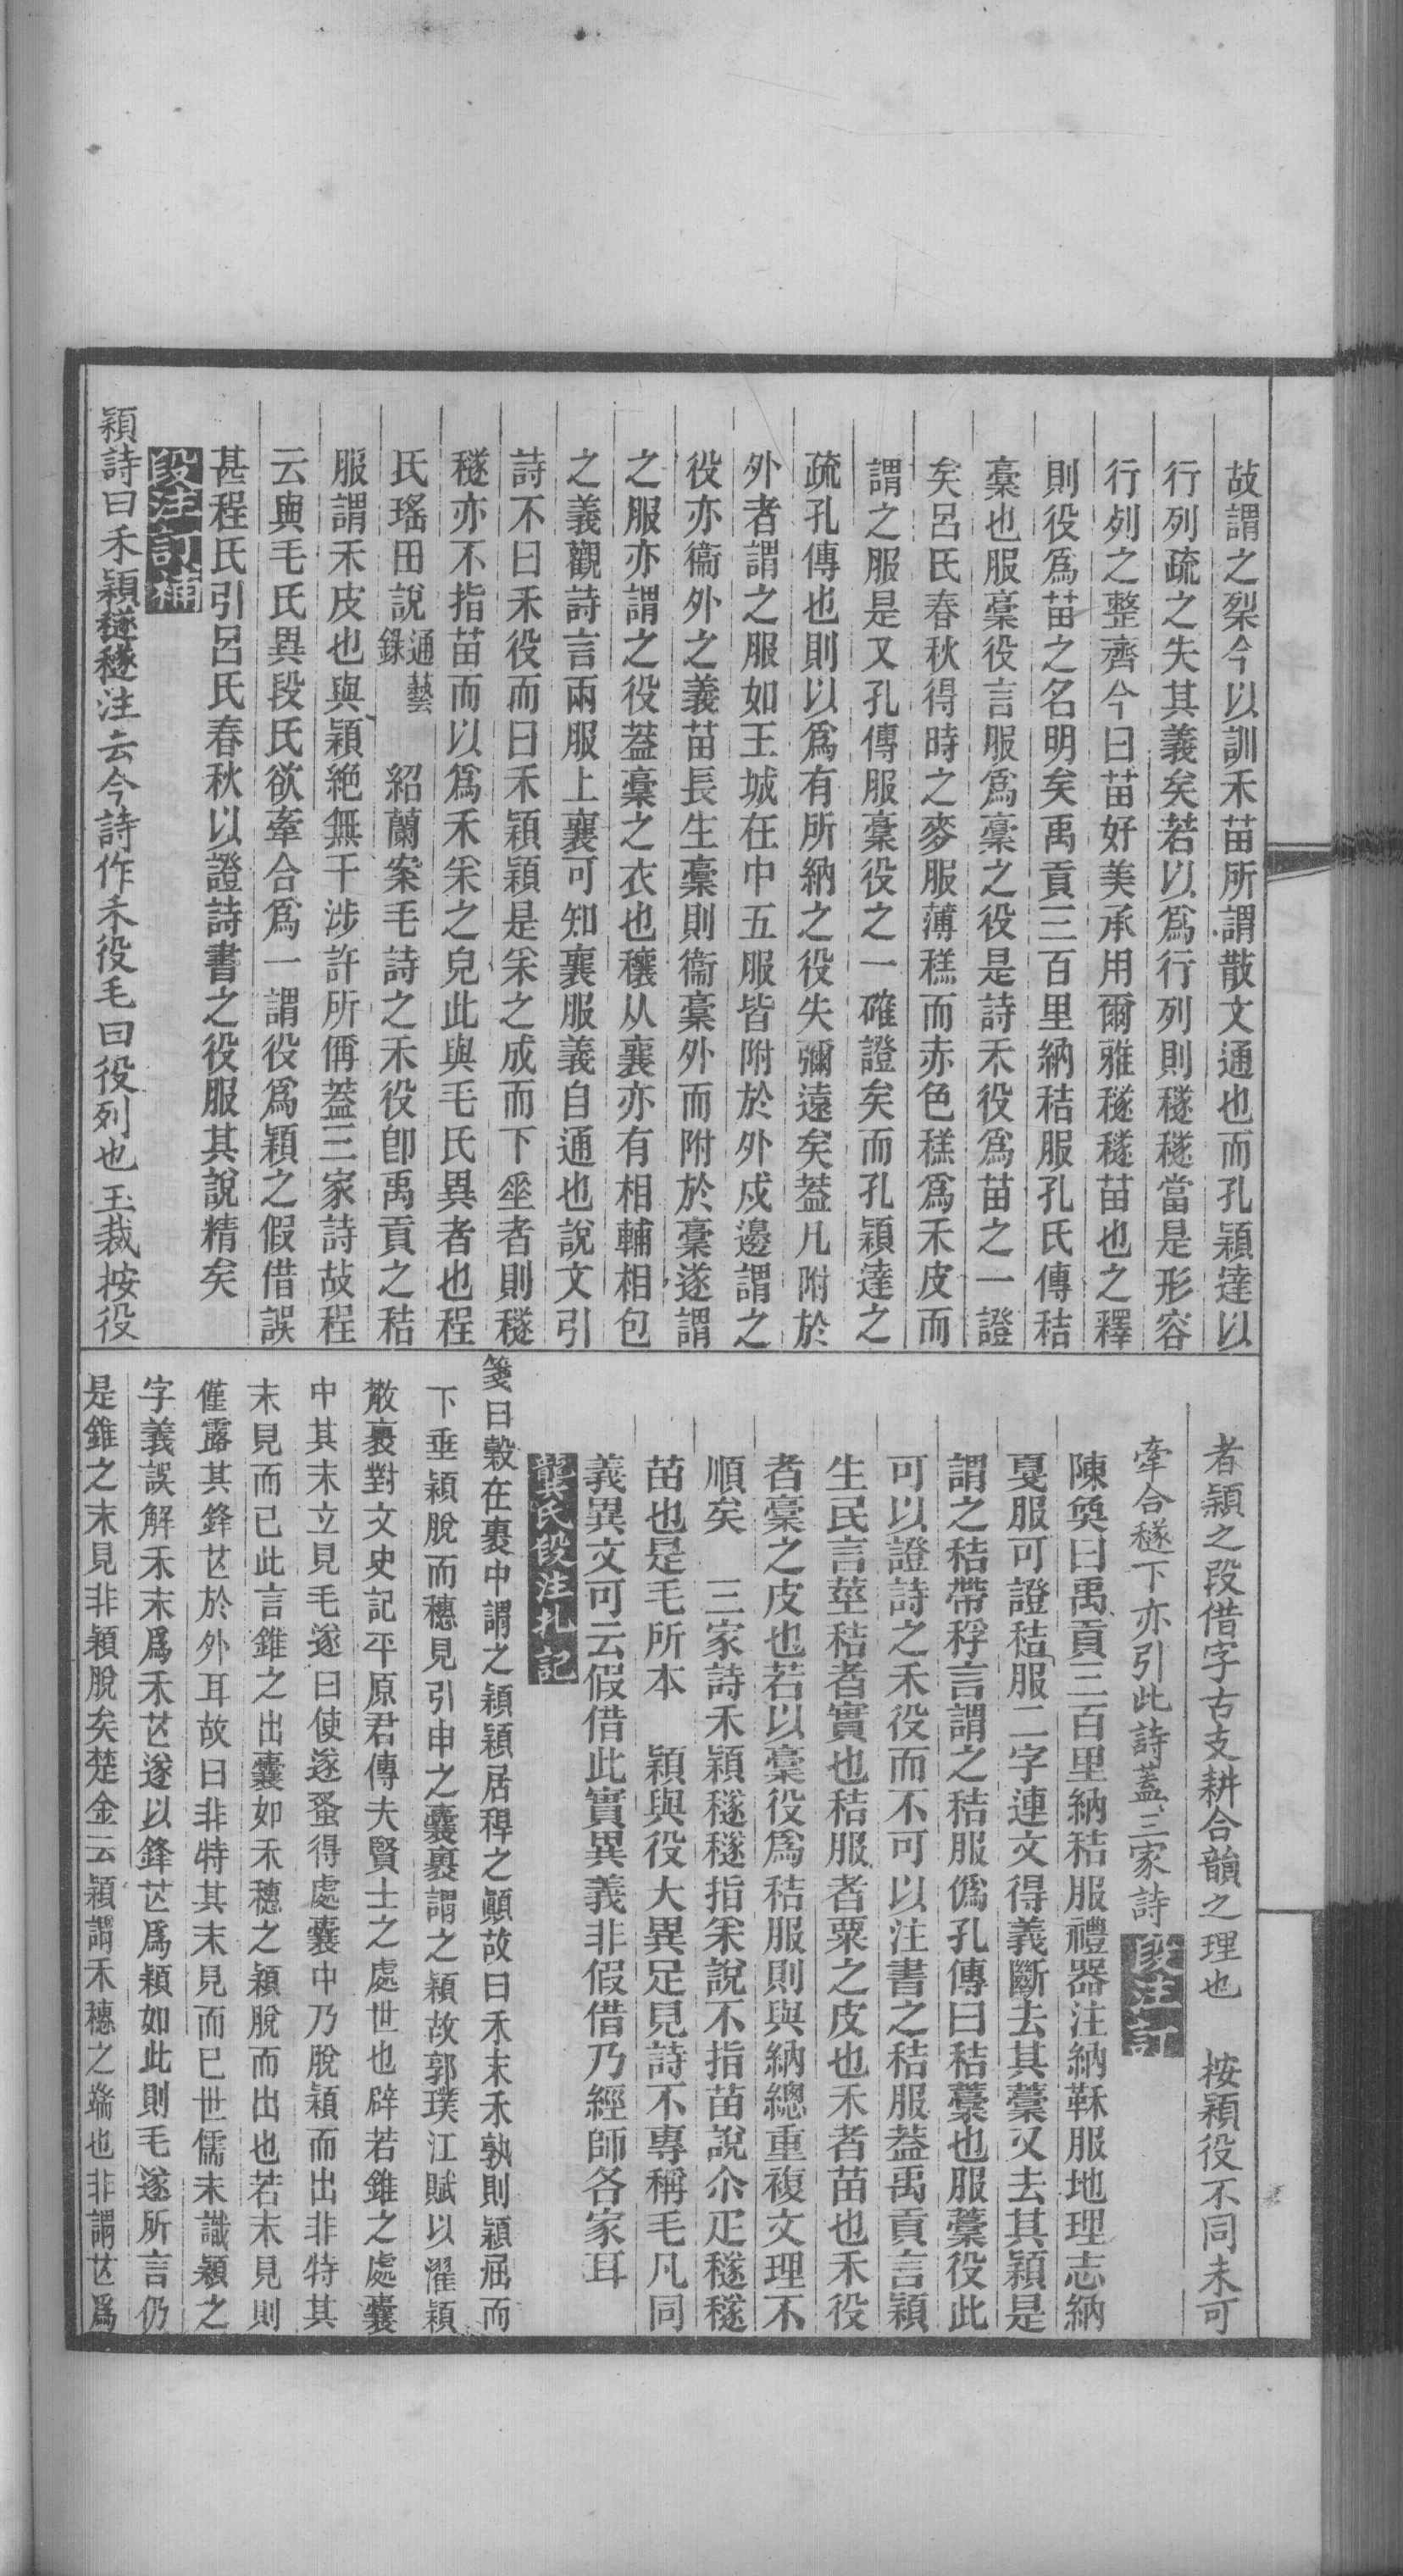 故謂之梨今以訓禾苗所謂散文通也而孔穎達以
行列疏之失其義矣若以爲行列則穟穟當是形容
行列之整齊今曰苗好美承用爾雅穟穟苗也之釋
則役爲苗之名明矣禹貢三百里納秸服孔氏傳秸
稾也服稾役言服爲稾之役是詩禾役爲苗之一證
矣呂氏春秋得時之麥服薄糕而赤色糕爲禾皮而
謂之服是又孔傳服稾役之一確證矣而孔穎達之
疏孔傳也則以爲有所納之役失彌遠矣葢凡附於
外者謂之服如王城在中五服皆附於外戍邊謂之
役亦衞外之義苗長生稾則衞稾外而附於稾遂謂
之服亦謂之役葢稾之衣也穰从襄亦有相輔相包
之義觀詩言兩服上襄可知襄服義自通也說文引
詩不曰禾役而曰禾穎穎是采之成而下𠂹者則穟
穟亦不指苗而以爲禾采之皃此與毛氏異者也程
氏瑤田說通藝錄　紹蘭案毛詩之禾役卽禹貢之秸
服謂禾皮也與穎絕無干涉許所偁葢三家詩故程
云與毛氏異段氏欲牽合爲一謂役爲穎之假借誤
甚程氏引呂氏春秋以證詩書之役服其說精矣
段注訂補
穎詩曰禾穎穟穟注云今詩作禾役毛曰役列也玉裁按役
者穎之段借字古支耕合韻之理也　按穎役不同未可
牽合穟下亦引此詩蓋三家詩　段注訂
陳奐曰禹貢三百里納秸服禮器注納𩊠服地理志納
戛服可證秸服二字連文得義斷去其藁又去其穎是
謂之秸帶稃言謂之秸服僞孔傳曰秸藁也服藁役此
可以證詩之禾役而不可以注書之秸服葢禹貢言穎
生民言莖秸者實也秸服者粟之皮也禾者苗也禾役
者稾之皮也若以稾役爲秸服則與納總重複文理不
順矣　三家詩禾穎穟穟指采說不指苗說尒疋穟穟
苗也是毛所本　穎與役大異足見詩不專稱毛凡同
義異文可云假借此實異義非假借乃經師各家耳
龔氏段注札記
箋曰穀在裹中謂之穎穎居稈之顚故曰禾末禾孰則穎屈而
下垂穎脫而穗見引申之囊裹謂之穎故郭璞江賦以濯穎
散裹對文史記平原君傳夫賢士之處世也辟若錐之處囊
中其末立見毛遂曰使遂蚤得處囊中乃脫穎而出非特其
末見而已此言錐之出囊如禾穗之穎脫而出也若末見則
僅露其鋒芒於外耳故曰非特其末見而已世儒未識穎之
字義誤解禾末爲禾芒遂以鋒芒爲穎如此則毛遂所言仍
是錐之末見非穎脫矣楚金云穎謂禾穗之端也非謂芒爲